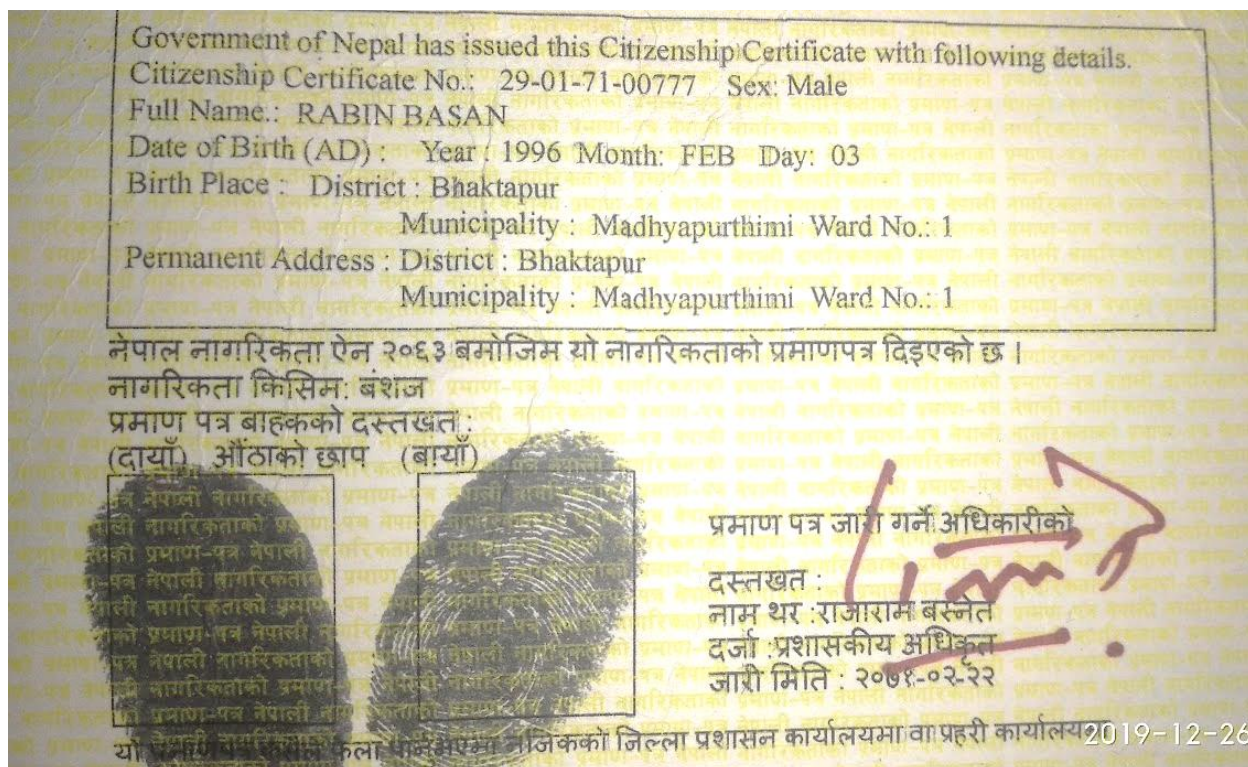 Government of Nepal has issued this Citizenship Certificate with following details.
Citizenship Certificate No.: 29-01-71-00777 Sex: Male
Full Name.: RABIN BASAN
Date of Birth (AD) : Year : 1996 Month: FEB Day: 03
Birth Place : District : Bhaktapur
Municipality : Madhyapurthimi Ward No.: 1
Permanent Address : District : Bhaktapur
Municipality : Madhyapurthimi Ward No.: 1
नेपाल नागरिकता ऐन २०६३ बमोजिम यो नागरिकताको प्रमाणपत्र दिइएको छ ।
नागरिकता किसिम: बंशज
प्रमाण पत्र बाहकको दस्तखत :
(दायाँ) औंठाको छाप (बायाँ)
प्रमाण पत्र जारी गर्ने अधिकारीको
दस्तखत :
नाम थर :राजाराम बस्नेत
दर्जा :प्रशासकीय अधिकृत
जारी मिति : २०७१-०२-२२
यो नजिकको जिल्ला प्रशासन कार्यालयमा वा प्रहरी
2019-12-26